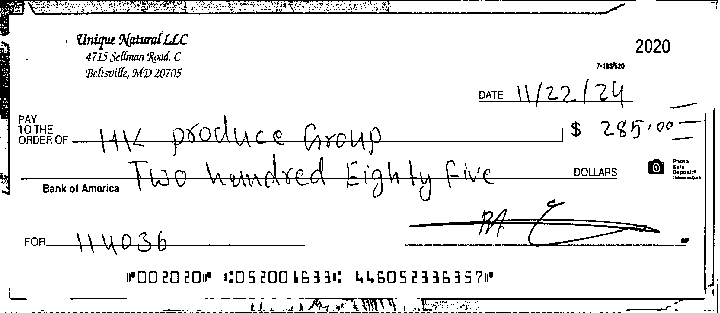 Unique Natural LLC
4715 Sellman Road. C
Beltsville, MD 20705
2020
7-163/520
DATE 11/22/24
PAY TO THE ORDER OF HK produce Group $ 285.00
Two hundred Eighty Five DOLLARS
Photo Safe Deposit®
Bank of America
FOR 114036
⑈002020⑈ ⑆052001633⑆ 446052336357⑈